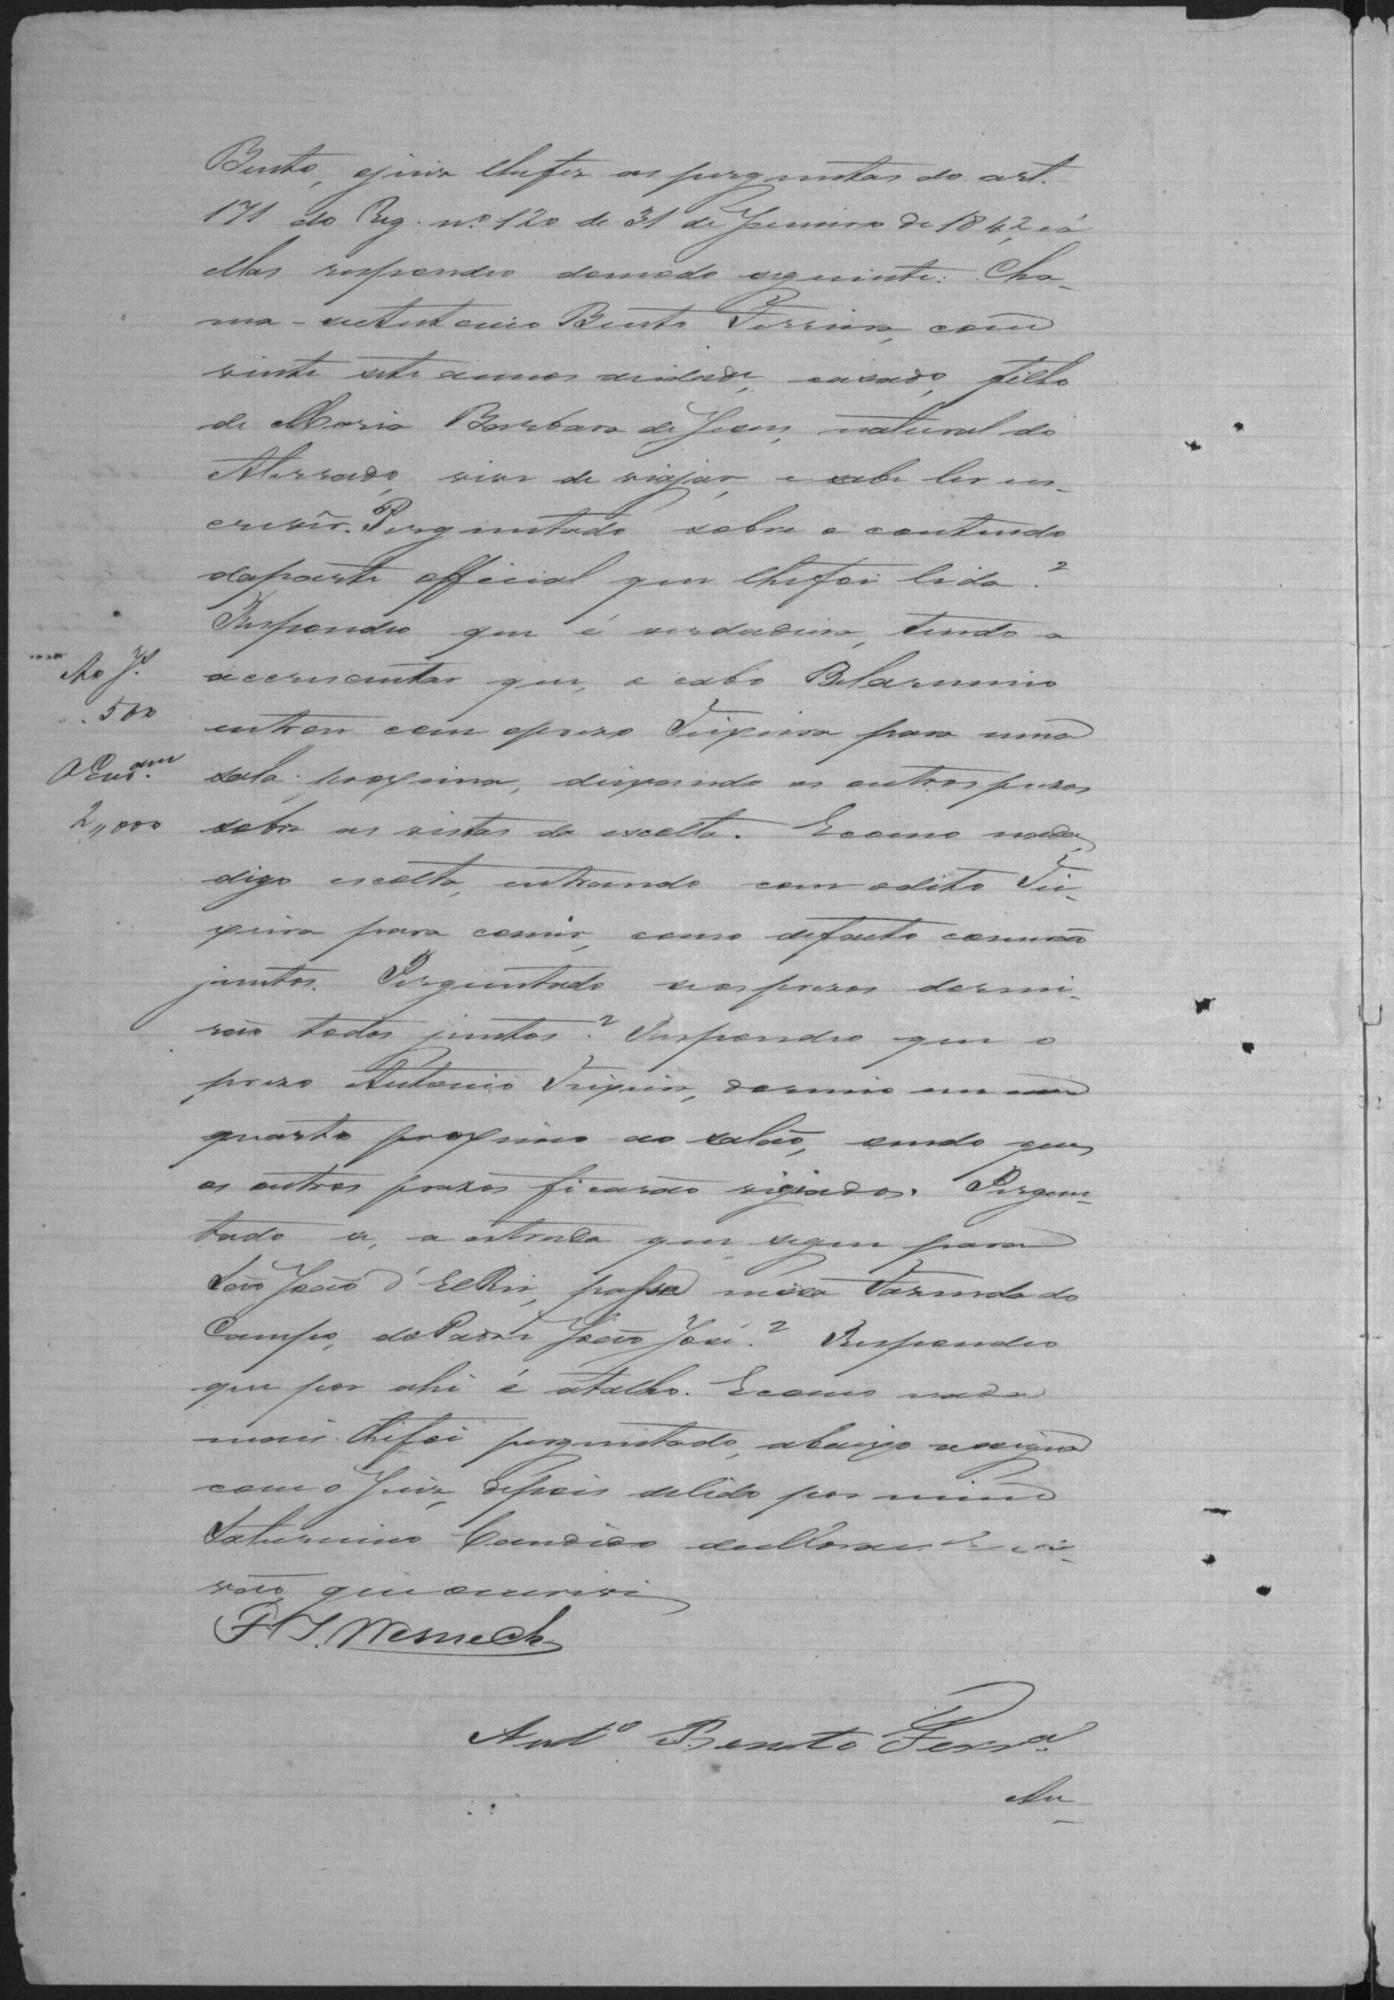 Bento, ojuiz lhefez as perguntas do art.
171 do Reg. nº 120 de 31 de Janeiro de 1842, eá
ellas respondeo domodo seguinte: Cha-
ma-se Antonio Bento Ferreira, com
vinte sete annos deidade, casado, filho
de Maria Barbara de Jesus, natural do
Aterrado, vive de viajar, e sabe ler e es-
crever. Perguntado sobre o conteudo
daparte official que lhefoi lida?
Respondeo que é verdadeira, tendo a
accrescentar que, o cabo Belarmino
entrou com oprezo Teixeira para uma
sala proxima, deixando os outros prezos
sobre as vistas da escolta. Ecomo nada,
digo escolta, entrando com odito Tei-
xeira para comer, como defacto comerão
juntos. Perguntado seosprezos dormi-
rão todos juntos? Respondeo que o
prezo Antonio Teixeira, dormio em um
quarto proximo ao salão, sendo que
os outros prezos ficarão vigiados. Pergun-
tado se, a estrada que segue para
São João d'El Rei, passa na Fazenda do
Campo, do Padre João José? Respondeo
que por ahi é atalho. Ecomo nada
mais lhefoi perguntado, abaixo assigna
com o Juiz, depois delido por mim
Saturnino Candido escri-
vão que escrevi
F J. Werneck
Antº Bento Ferrª
Au-
Ao Jz.
500
Ao Escram.
2,,000